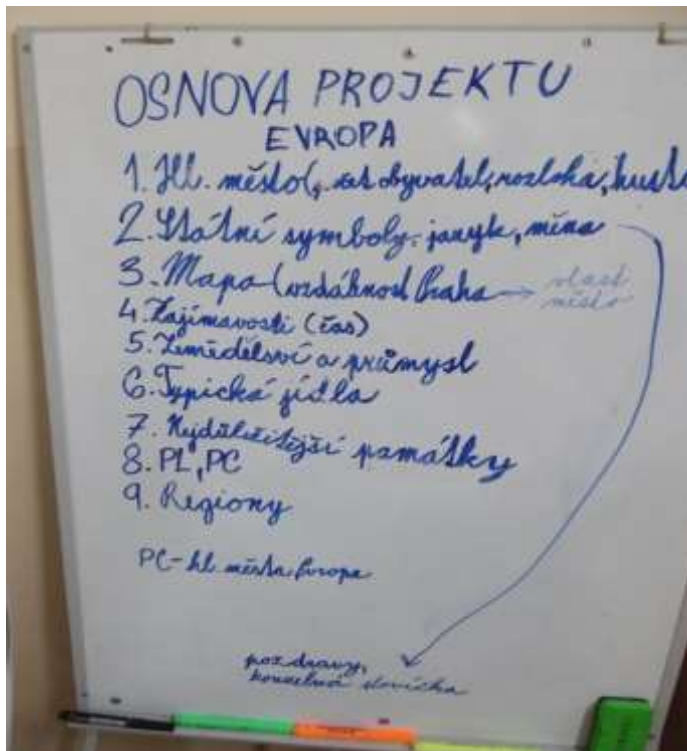 OSNOVA PROJEKTU
EVROPA
1. Hl. město(, obyvatel, rozloha, husto
2. Státní symboly, jazyk, měna
3. Mapa (vzdálenost Praha →
město
4. Zajímavosti (čas)
5. Zemědělství a průmysl
6. Typická jídla
7. Nejdůležitější památky
8. PL, PC
9. Regiony
PC - hl. města Evropa
pozdravy,
kouzelná slovíčka